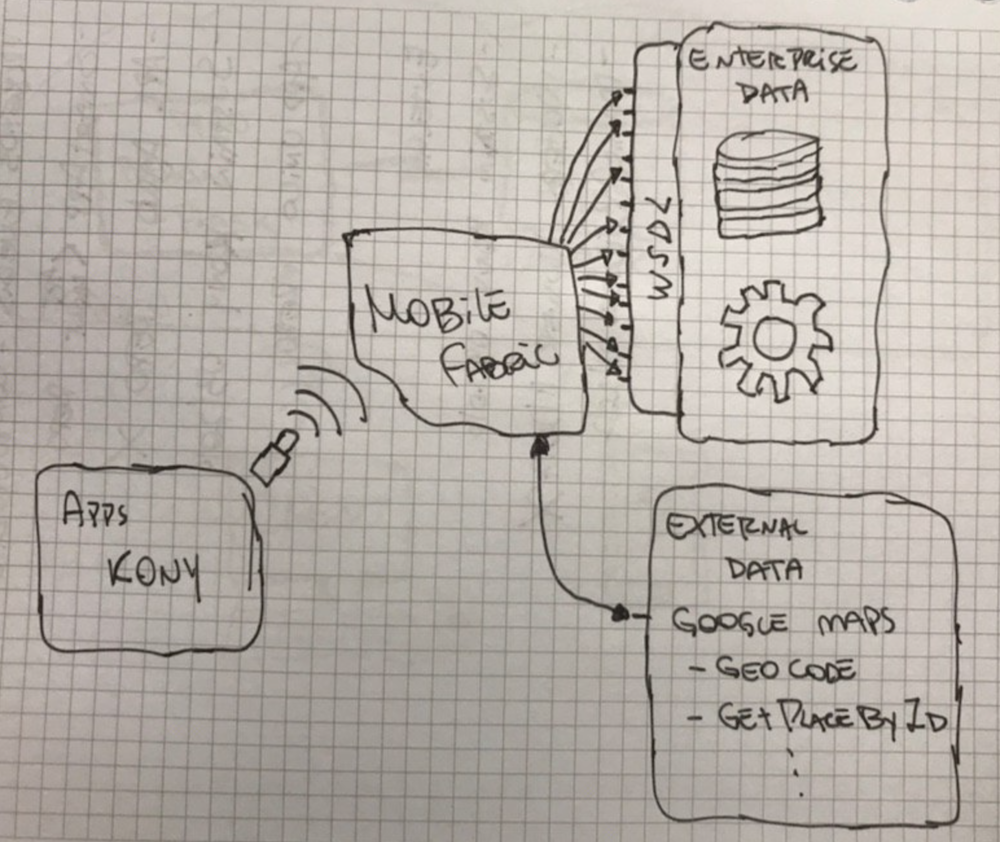 ENTERPRISE
DATA
WSDL
MOBILE
FABRIC
APPS
KONY
EXTERNAL
DATA
GOOGLE MAPS
- GEOCODE
- GET PLACE BY ID